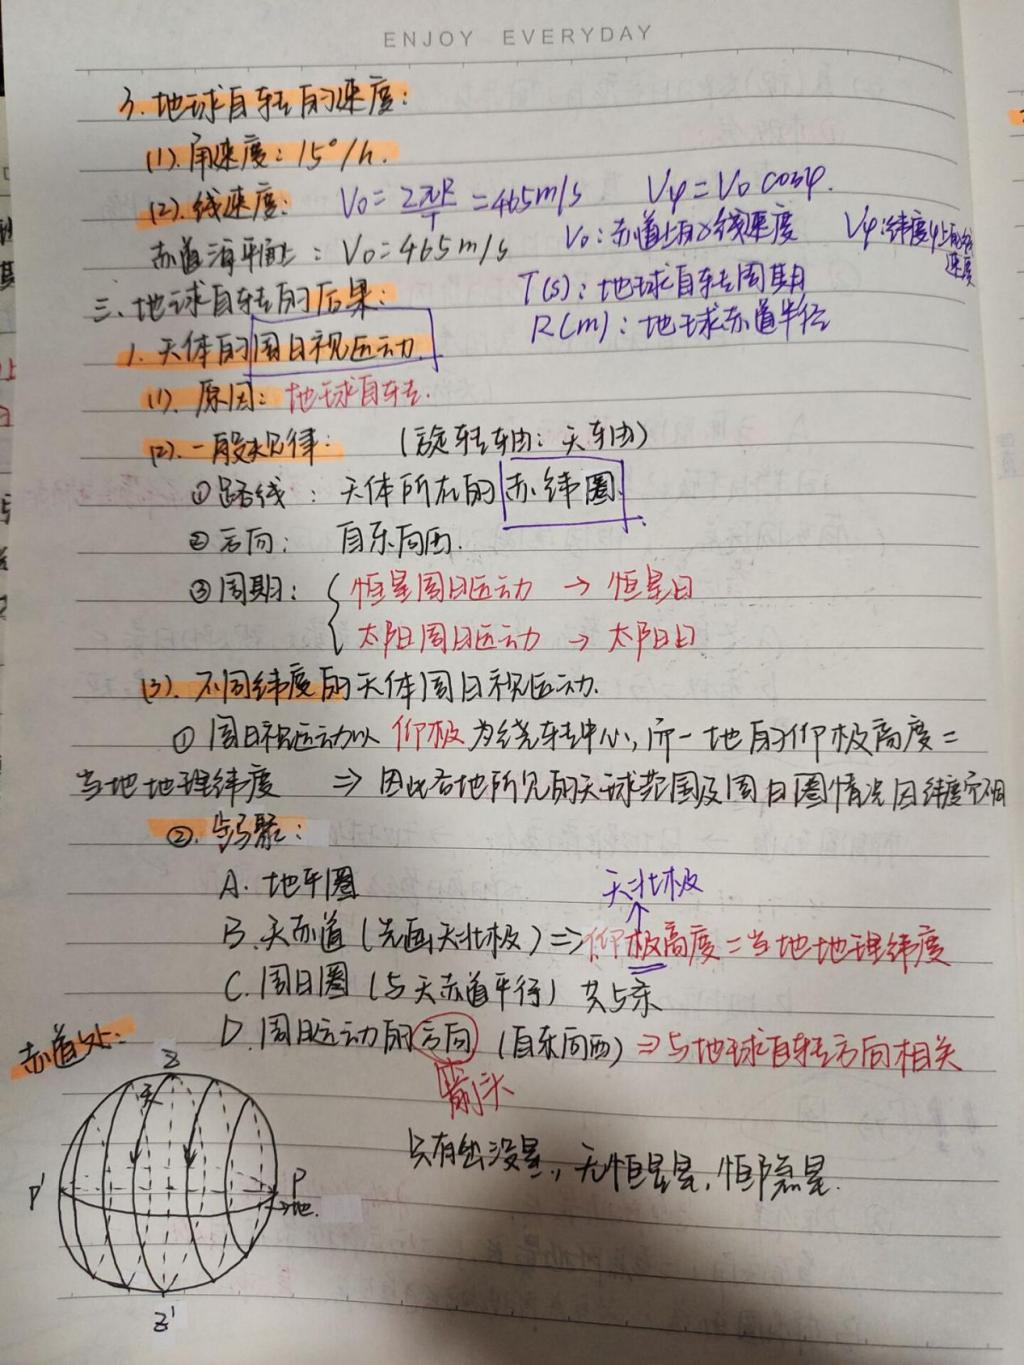 ENJOY EVERYDAY
3. 地球自转的速度:
(1). 角速度: 15°/h.
(2). 线速度: V₀ = 2πR/T = 465m/s Vφ = V₀ cosφ.
赤道海平面上: V₀ = 465m/s V₀: 赤道上的线速度 Vφ: 纬度φ上的线速度
T(s): 地球自转周期
三. 地球自转的后果: R(m): 地球赤道半径
1. 天体的周日视运动.
(1). 原因: 地球自转.
(2). 一般规律: (旋转轴: 天轴)
① 路线: 天体所在的赤纬圈.
② 方向: 自东向西.
③ 周期: { 恒星周日运动 → 恒星日
太阳周日运动 → 太阳日
(3). 不同纬度的天体周日视运动.
① 周日视运动以仰极为绕转中心, 而一地的仰极高度=
当地地理纬度 ⇒ 因此各地所见的天球范围及周日圈情况因纬度而不同
②. 步骤:
A. 地平圈 天北极
B. 天赤道 (先画天北极) ⇒ 仰极高度=当地地理纬度
C. 周日圈 (与天赤道平行) 共5条
D. 周日运动的方向 (自东向西) ⇒ 与地球自转方向相关
箭头
赤道处:
只有出没星, 无恒显星, 恒隐星.
Z
天
P' P
地.
Z'